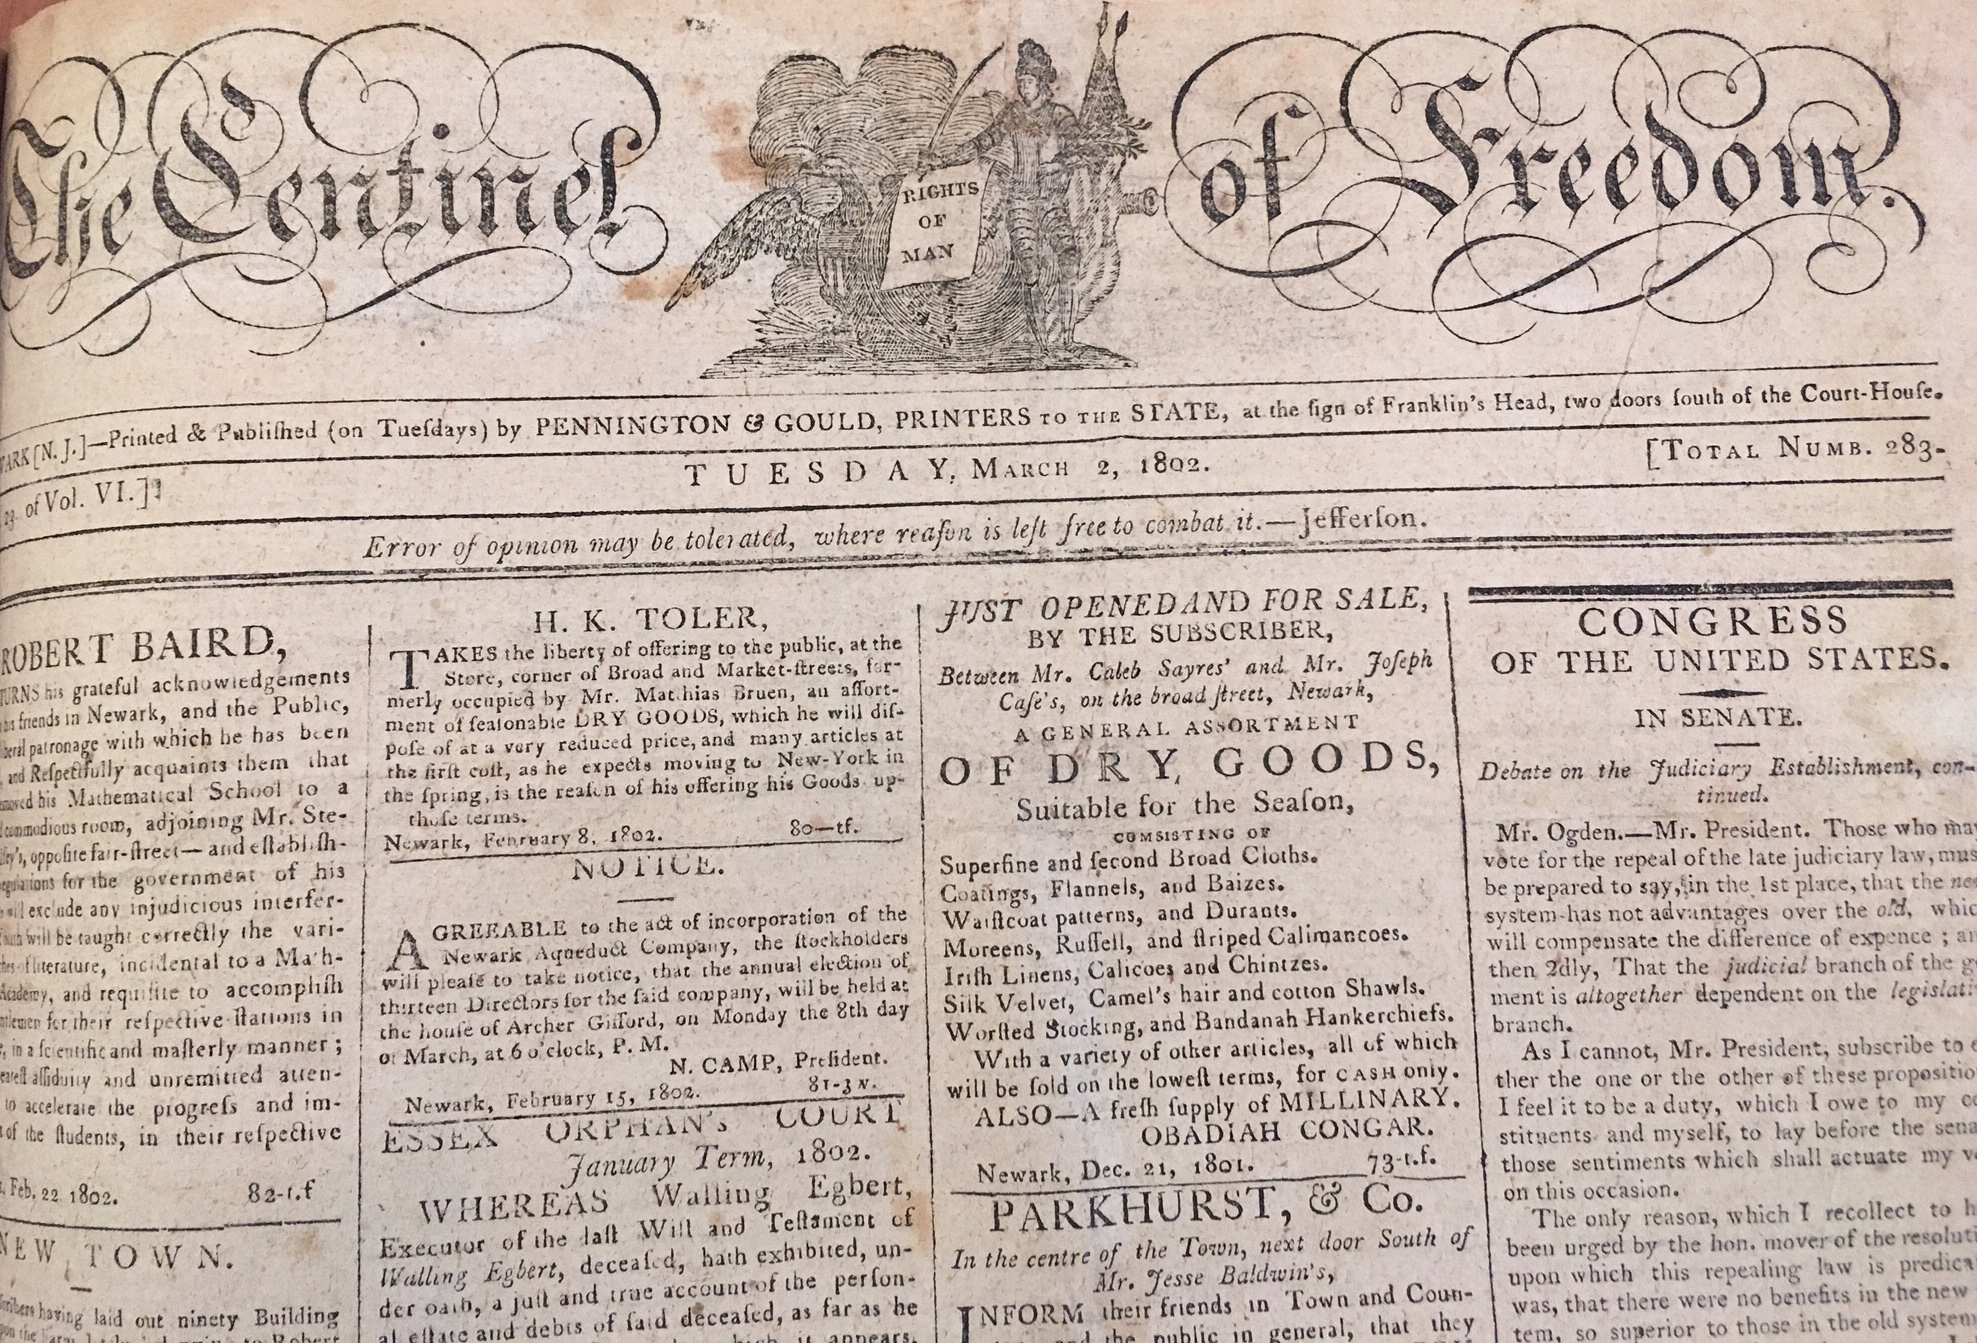 The Centinel of Freedom.
RIGHTS
OF
MAN
[N. J.]—Printed & Publiſhed (on Tueſdays) by PENNINGTON & GOULD, PRINTERS TO THE STATE, at the ſign of Franklin's Head, two doors ſouth of the Court-Houſe.
of Vol. VI.] TUESDAY, MARCH 2, 1802. [TOTAL NUMB. 283.
Error of opinion may be tolerated, where reaſon is left free to combat it.—Jefferſon.
ROBERT BAIRD,
his grateful acknowledgements
his friends in Newark, and the Public,
patronage with which he has been
and Reſpectfully acquaints them that
his Mathematical School to a
commodious room, adjoining Mr. Ste-
oppoſite fair-ſtreet—and eſtabliſh-
for the government of his
will exclude any injudicious interfer-
will be taught correctly the vari-
of literature, incidental to a Math-
Academy, and requiſite to accompliſh
for their reſpective ſtations in
in a ſcientific and maſterly manner;
aſſiduity and unremitted atten-
to accelerate the progreſs and im-
of the ſtudents, in their reſpective
Feb. 22 1802. 82-t.f
NEW TOWN.
having laid out ninety Building
H. K. TOLER,
TAKES the liberty of offering to the public, at the
Store, corner of Broad and Market-ſtreets, for-
merly occupied by Mr. Matthias Bruen, an aſſort-
ment of ſeaſonable DRY GOODS, which he will diſ-
poſe of at a very reduced price, and many articles at
the firſt coſt, as he expects moving to New-York in
the ſpring, is the reaſon of his offering his Goods up-
thoſe terms.
Newark, February 8, 1802. 80—tf.
NOTICE.
AGREEABLE to the act of incorporation of the
Newark Aqueduct Company, the ſtockholders
will pleaſe to take notice, that the annual election of
thirteen Directors for the ſaid company, will be held at
the houſe of Archer Gifford, on Monday the 8th day
of March, at 6 o'clock, P. M.
N. CAMP, Preſident.
Newark, February 15, 1802. 81-3w.
ESSEX ORPHAN's COURT
January Term, 1802.
WHEREAS Walling Egbert,
Executor of the laſt Will and Teſtament of
Walling Egbert, deceaſed, hath exhibited, un-
der oath, a juſt and true account of the perſon-
al eſtate and debts of ſaid deceaſed, as far as he
which it appears,
JUST OPENED AND FOR SALE,
BY THE SUBSCRIBER,
Between Mr. Caleb Sayres' and Mr. Joſeph
Caſe's, on the broad ſtreet, Newark,
A GENERAL ASSORTMENT
OF DRY GOODS,
Suitable for the Seaſon,
CONSISTING OF
Superfine and ſecond Broad Cloths.
Coatings, Flannels, and Baizes.
Waiſtcoat patterns, and Durants.
Moreens, Ruſſell, and ſtriped Calimancoes.
Iriſh Linens, Calicoes and Chintzes.
Silk Velvet, Camel's hair and cotton Shawls.
Worſted Stocking, and Bandanah Hankerchiefs.
With a variety of other articles, all of which
will be ſold on the loweſt terms, for CASH only.
ALSO—A freſh ſupply of MILLINARY.
OBADIAH CONGAR.
Newark, Dec. 21, 1801. 73-t.f.
PARKHURST, & Co.
In the centre of the Town, next door South of
Mr. Jesse Baldwin's,
INFORM their friends in Town and Coun-
and the public in general, that they
CONGRESS
OF THE UNITED STATES.
IN SENATE.
Debate on the Judiciary Establishment, con-
tinued.
Mr. Ogden.—Mr. President. Those who may
vote for the repeal of the late judiciary law, mus
be prepared to say, in the 1st place, that the new
system has not advantages over the old, whic
will compensate the difference of expence; an
then 2dly, That the judicial branch of the g
ment is altogether dependent on the legislati
branch.
As I cannot, Mr. President, subscribe to e
ther the one or the other of these propositio
I feel it to be a duty, which I owe to my co
stituents and myself, to lay before the sena
those sentiments which shall actuate my v
on this occasion.
The only reason, which I recollect to h
been urged by the hon. mover of the resoluti
upon which this repealing law is predica
was, that there were no benefits in the new
tem, so superior to those in the old system